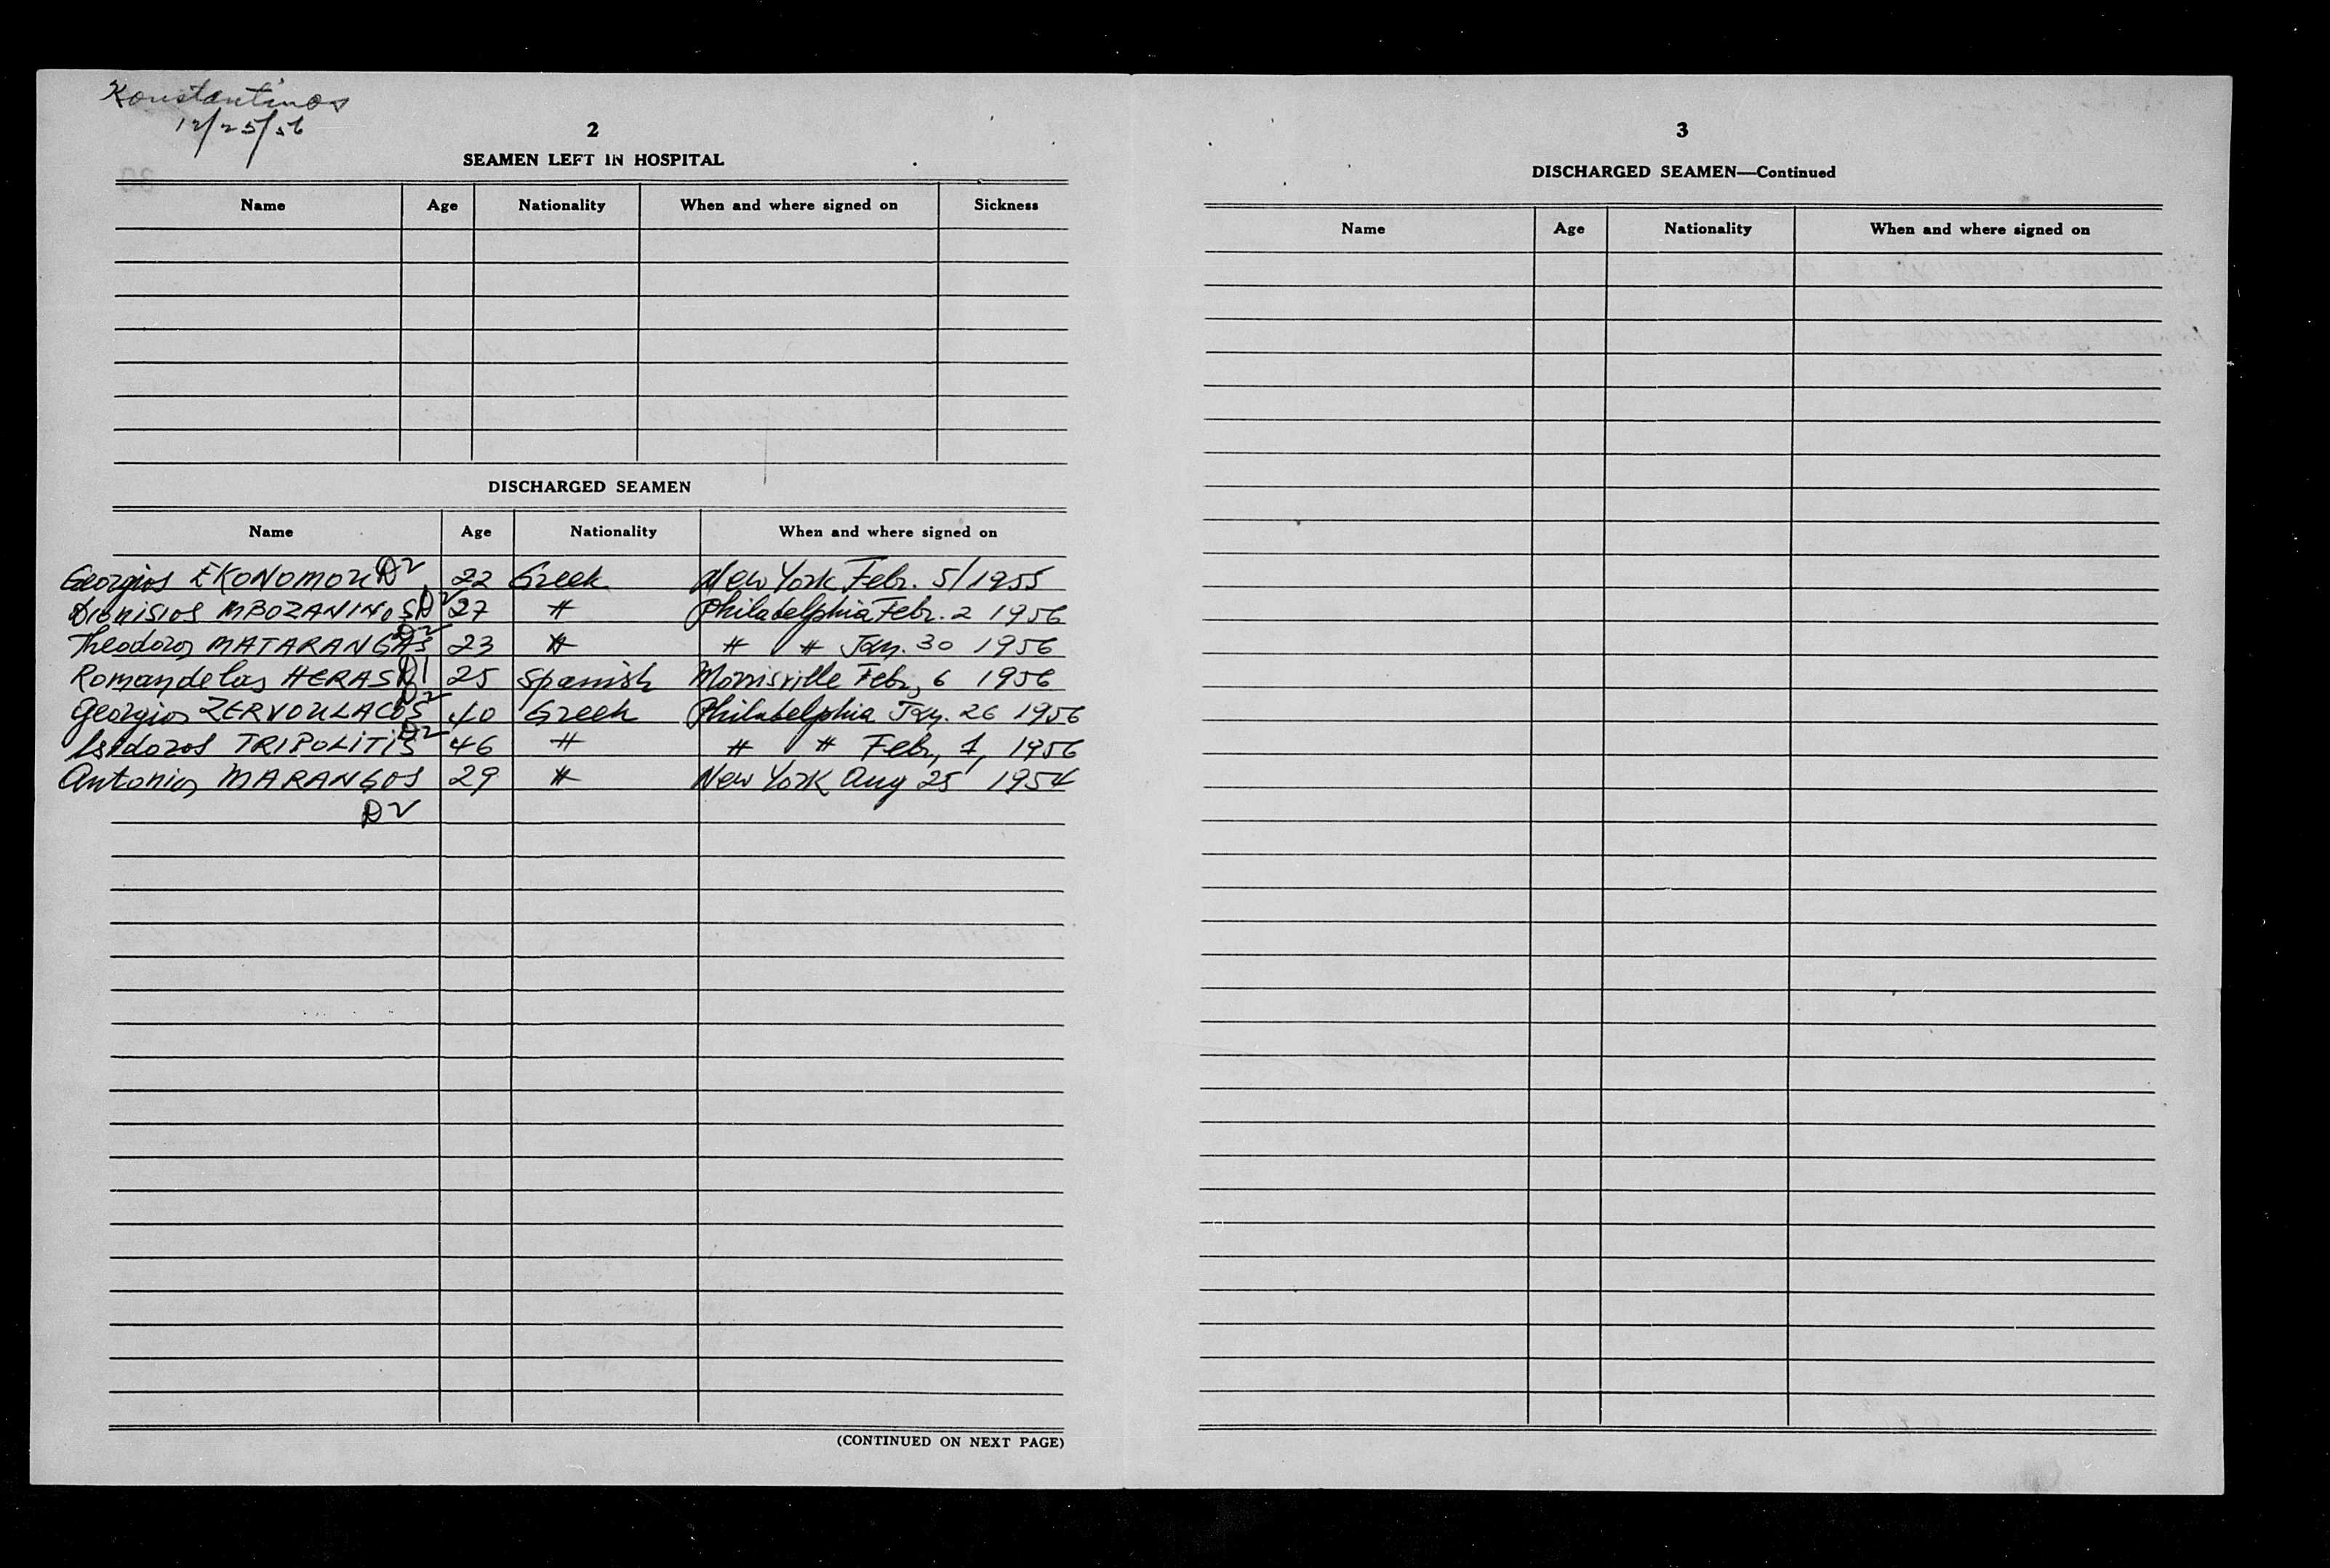 Konstantinos
12/25/56
2
SEAMEN LEFT IN HOSPITAL
Name Age Nationality When and where signed on Sickness
DISCHARGED SEAMEN
Name Age Nationality When and where signed on
Georgios EKONOMOU D2 22 Greek New York Febr. 5/1955
Dionisios MBOZANINOS D2 27 " Philadelphia Febr. 2 1956
Theodoros MATARANGAS D2 23 " " " Jan. 30 1956
Roman de las HERAS D1 25 Spanish Morrisville Febr, 6 1956
Georgios ZERVOULACOS D2 40 Greek Philadelphia Jan. 26 1956
Isidoros TRIPOLITIS D2 46 " " " Febr, 1, 1956
Antonios MARANGOS 29 " New York Aug 25 1954
D2
(CONTINUED ON NEXT PAGE)
3
DISCHARGED SEAMEN—Continued
Name Age Nationality When and where signed on